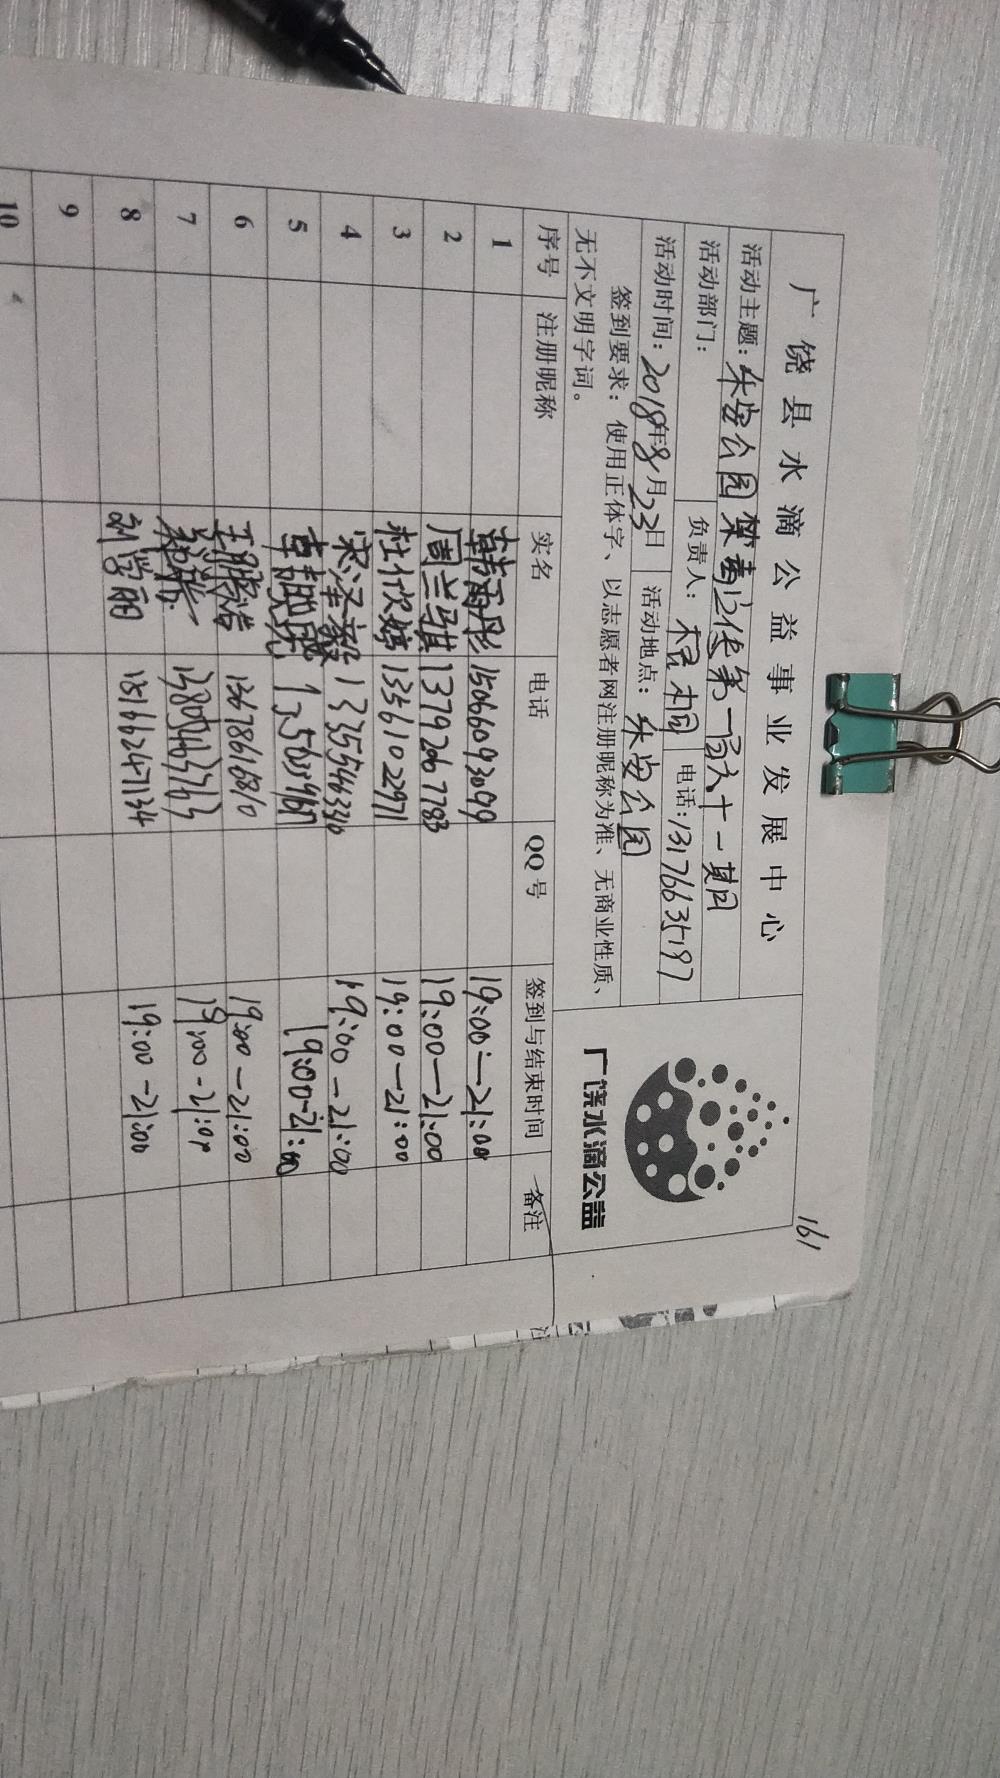 161
广饶县水滴公益事业发展中心
活动主题：乐安公园禁毒宣传第一百六十一期
活动部门： 负责人： 电话：13176635197
活动时间：2018年8月23日 活动地点：乐安公园
签到要求：使用正体字、以志愿者网注册昵称为准、无商业性质、
无不文明字词。
广饶水滴公益
序号 注册昵称 实名 电话 QQ号 签到与结束时间 备注
1 韩雨彤 15066093099 19:00—21:00
2 周兰琪 13792067783 19:00—21:00
3 杜欣婷 13361022971 19:00—21:00
4 宋泽毅 13355466336 19:00—21:00
5 19:00-21:00
6 王鹏浩 13678616810 19:00—21:00
7 19:00-21:00
8 刘学丽 15166247134 19:00-21:00
9
10